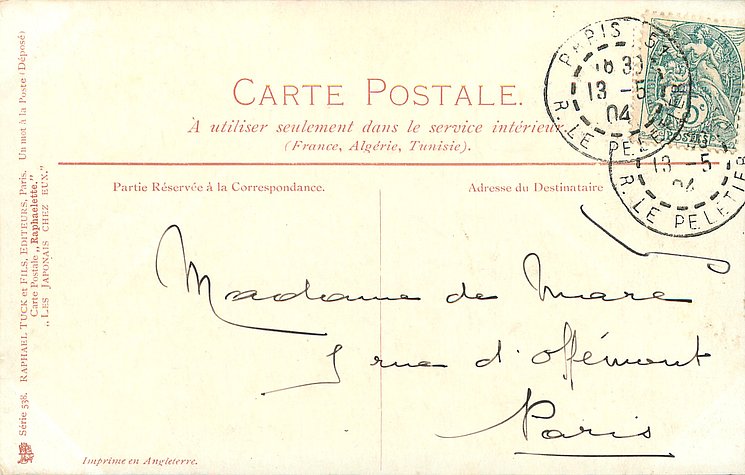 CARTE POSTALE.
À utiliser seulement dans le service intérieur
(France, Algérie, Tunisie).
Partie Réservée à la Correspondance.
Adresse du Destinataire
PARIS
13 - 5
04
R. LE PELETIER
13 - 5
04
R. LE PELETIER
POSTES
Madame de Mare
5 rue d'Offémont
Paris
Imprime en Angleterre.
Série 538. RAPHAEL TUCK et FILS, EDITEURS, Paris. Un mot à la Poste (Déposé)
Carte Postale „Raphaelette."
„LES JAPONAIS CHEZ EUX."